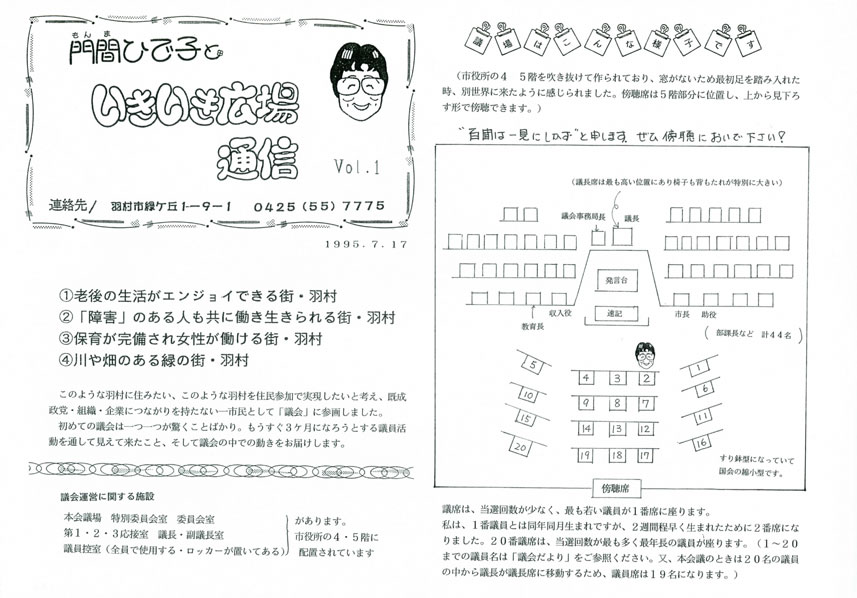 もんま
門間ひで子と
いきいき広場
通信
Vol.1
連絡先/ 羽村市緑ケ丘1-9-1 0425(55)7775
1995.7.17
①老後の生活がエンジョイできる街・羽村
②「障害」のある人も共に働き生きられる街・羽村
③保育が完備され女性が働ける街・羽村
④川や畑のある緑の街・羽村
このような羽村に住みたい、このような羽村を住民参加で実現したいと考え、既成
政党・組織・企業につながりを持たない一市民として「議会」に参画しました。
初めての議会は一つ一つが驚くことばかり。もうすぐ3ケ月になろうとする議員活
動を通して見えて来たこと、そして議会の中での動きをお届けします。
議会運営に関する施設
本会議場 特別委員会室 委員会室
第1・2・3応接室 議長・副議長室
議員控室(全員で使用する・ロッカーが置いてある)
があります。
市役所の4・5階に
配置されています
議場はこんな様子です
(市役所の4 5階を吹き抜けて作られており、窓がないため最初足を踏み入れた
時、別世界に来たように感じられました。傍聴席は5階部分に位置し、上から見下ろ
す形で傍聴できます。)
"百聞は一見にしかず"と申します。ぜひ傍聴においで下さい?
(議長席は最も高い位置にあり椅子も背もたれが特別に大きい)
議会事務局長 議長
発言台
速記
収入役
教育長
市長 助役
(部課長など 計44名)
5 4 3 2 1
10 9 8 7 6
15 14 13 12 11
20 19 18 17 16
すり鉢型になっていて
国会の縮小型です。
傍聴席
議席は、当選回数が少なく、最も若い議員が1番席に座ります。
私は、1番議員とは同年同月生まれですが、2週間程早く生まれたために2番席にな
りました。20番議席は、当選回数が最も多く最年長の議員が座ります。(1~20
までの議員名は「議会だより」をご参照ください。又、本会議のときは20名の議員
の中から議長が議長席に移動するため、議員席は19名になります。)